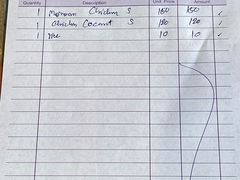 Quantity Description Unit Price Amount
1 Chicken S 150 150 ✓
1 Chicken Coconut S 180 180 ✓
1 10 10 ✓